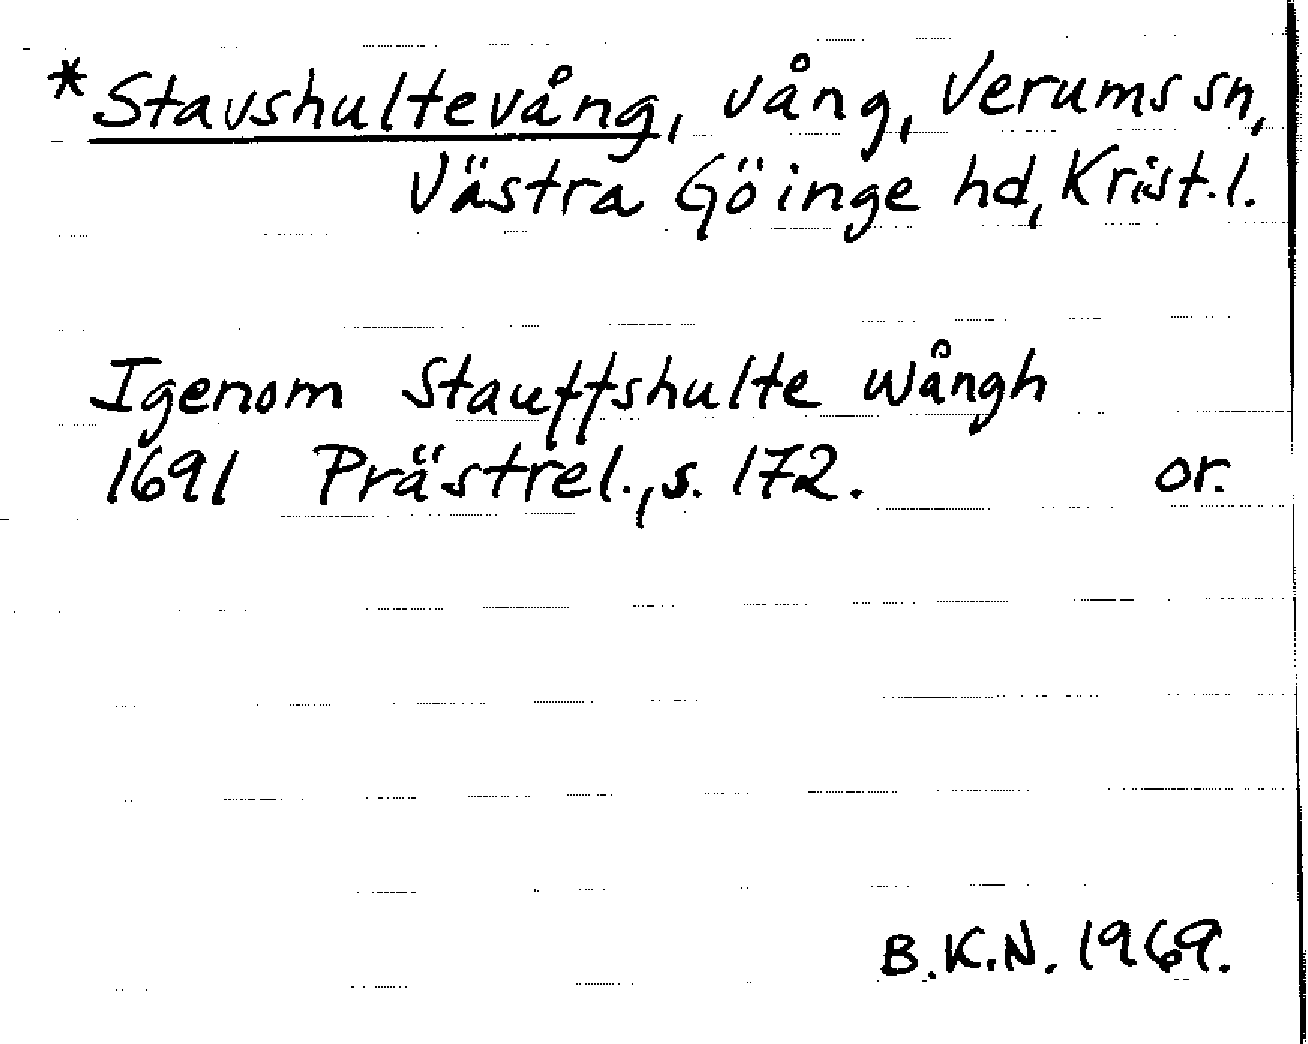 *Stavshultevång, vång, Verums sn,
Västra Göinge hd, Krist. l.
Igenom Stauffshulte wångh
1691 Prästrel., s. 172. or.
B.K.N. 1969.